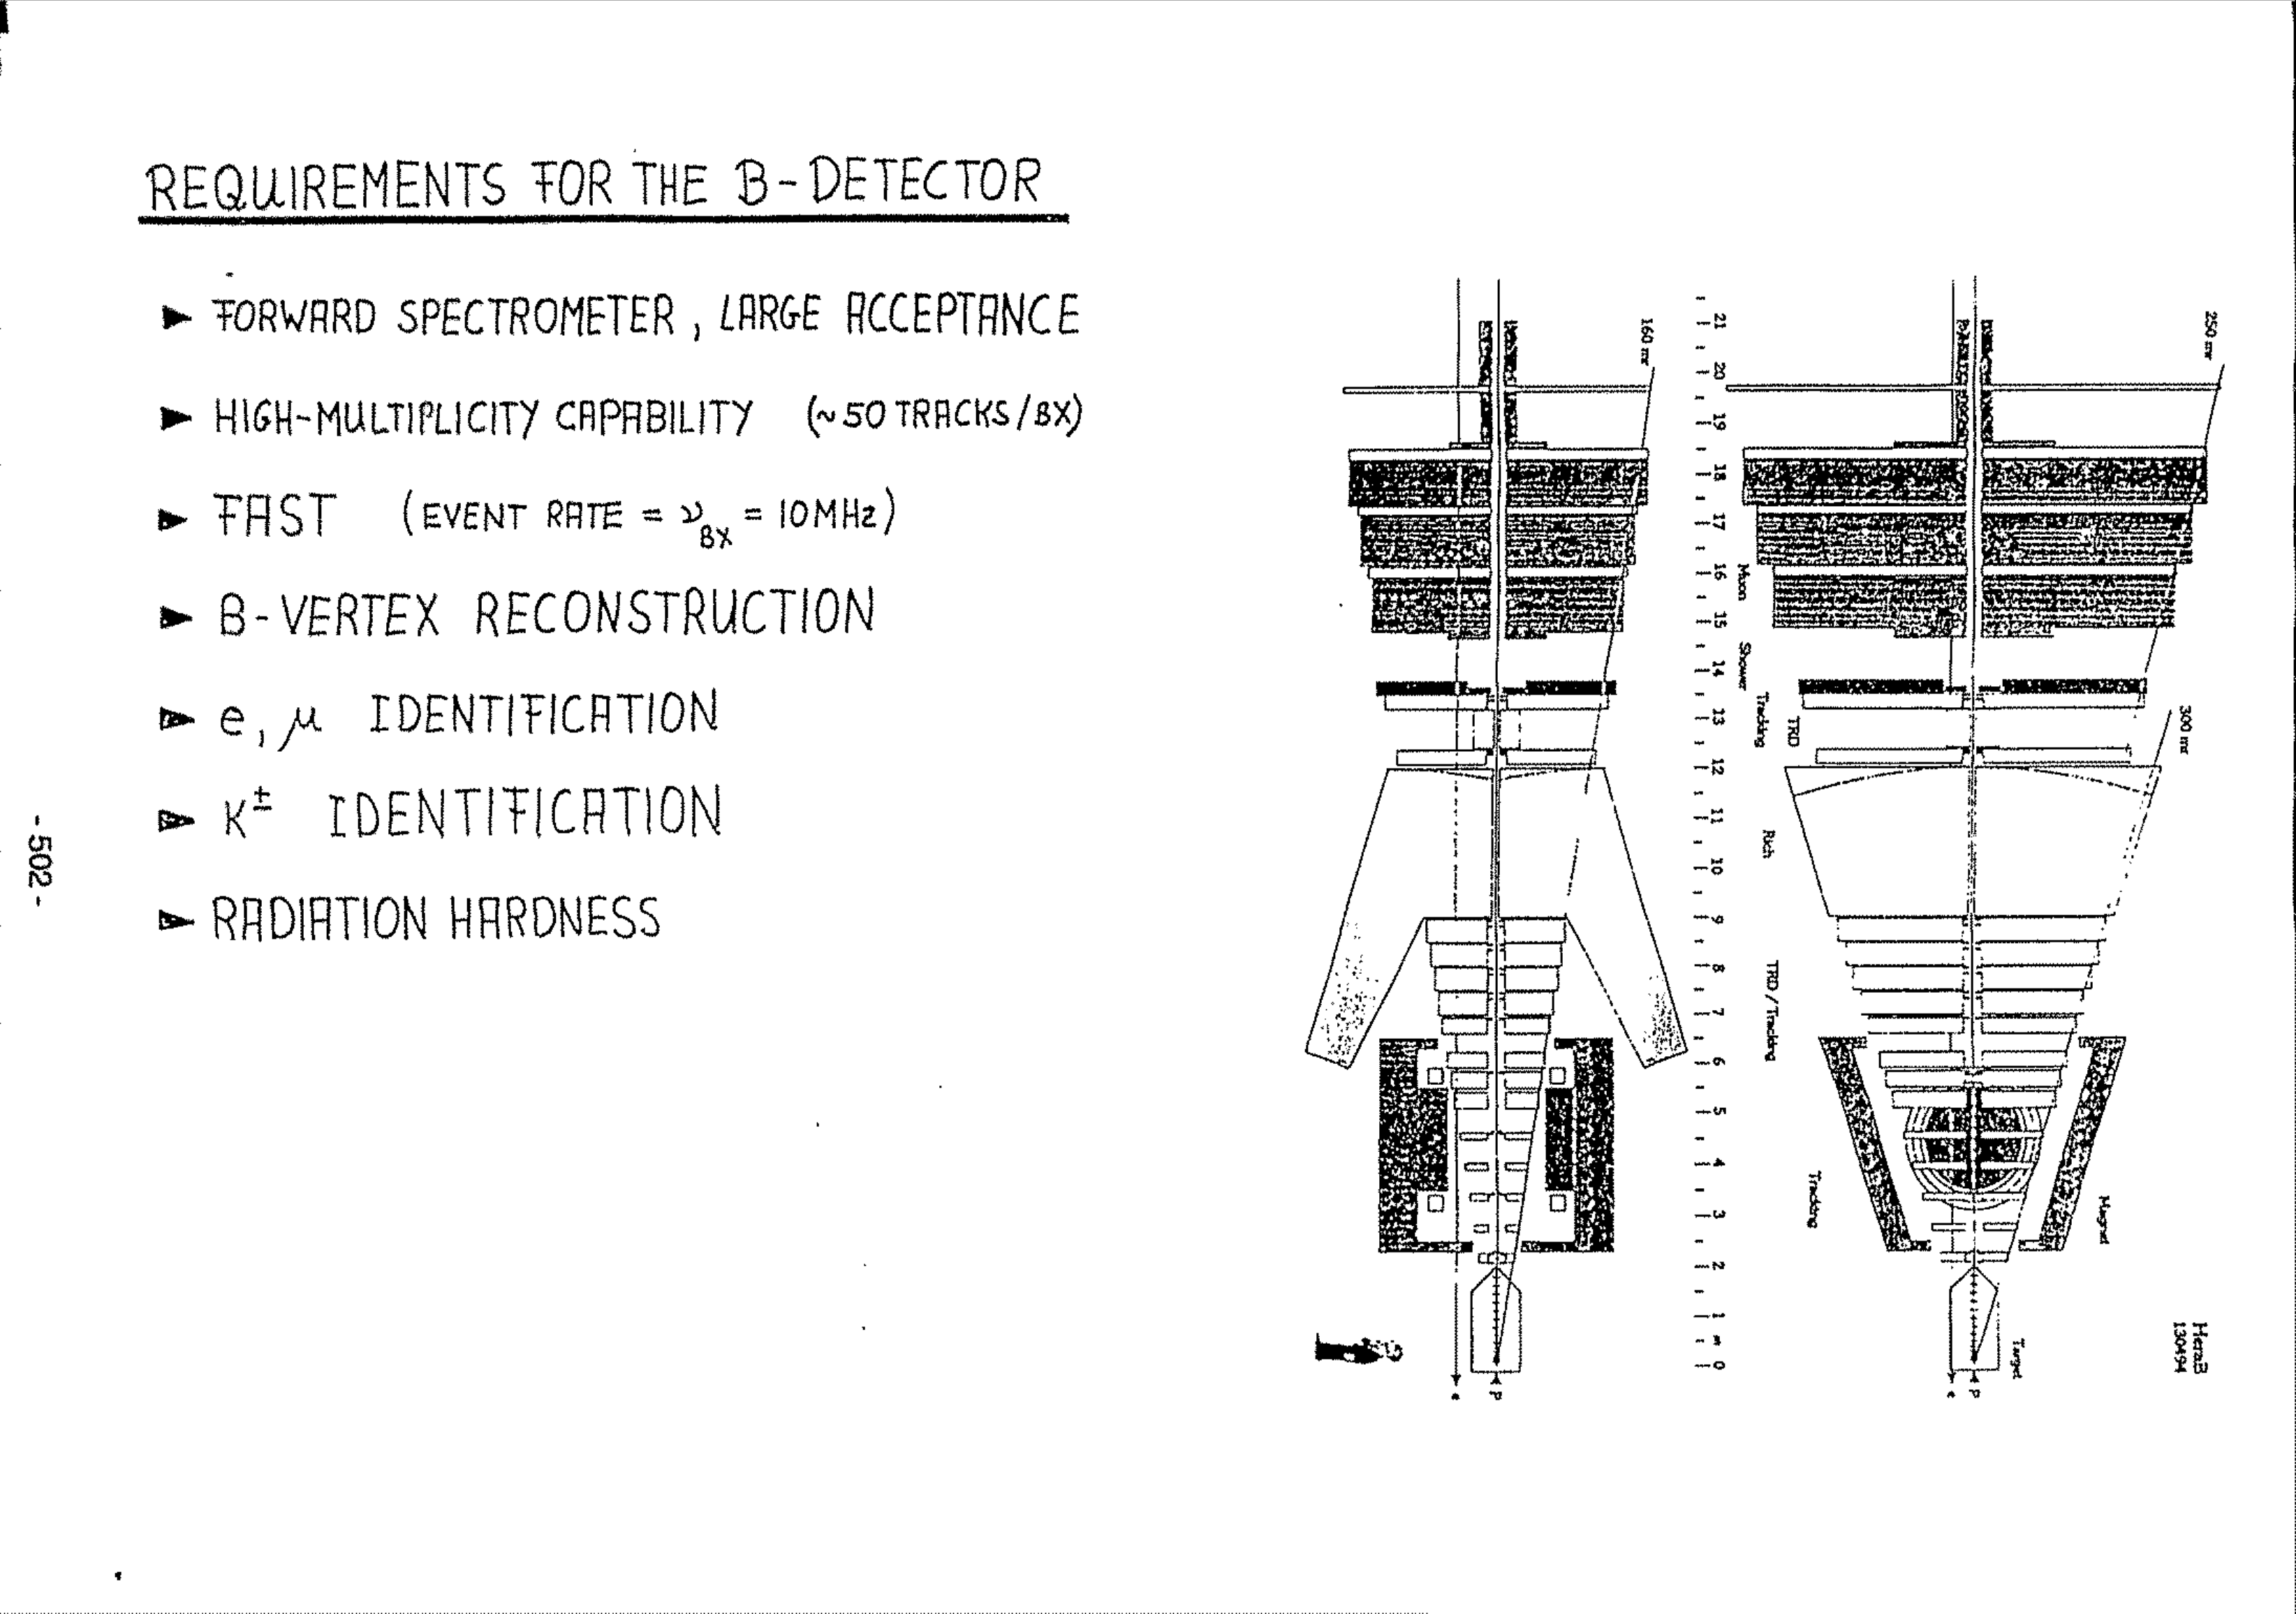 REQUIREMENTS FOR THE B-DETECTOR
► FORWARD SPECTROMETER, LARGE ACCEPTANCE
► HIGH-MULTIPLICITY CAPABILITY (~50 TRACKS/BX)
► FAST (EVENT RATE = ν_BX = 10MHz)
► B-VERTEX RECONSTRUCTION
► e, μ IDENTIFICATION
► K± IDENTIFICATION
► RADIATION HARDNESS
- 502 -
250 mr
160 mr
300 mr
21
20
19
18
17
16
15
14
13
12
11
10
9
8
7
6
5
4
3
2
1
m
0
Muon
Shower
Tracking
TRD
Rich
TRD / Tracking
Tracking
Magnet
Target
HeraB
130494
e
p
e
p